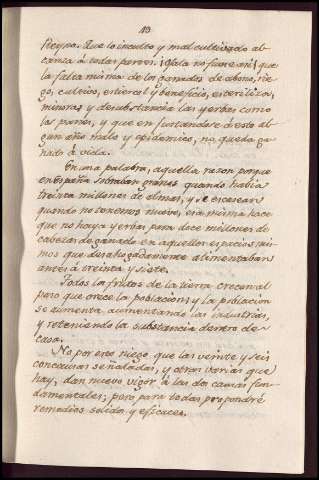 Reyno. Que lo inculto y mal cultivado al-
canza á todas partes. ¡Ojala no fuese asi! que
la falta misma de los ganados de abono, rie-
go, cultivo, estiercol y beneficio, esteriliza,
minora y desubstancia las yerbas como
los panes, y que en juntandose á esto al-
gun año malo y epidemico, no queda ga-
nado á vida.
En una palabra, aquella razon porque
en España sobraban granos quando habia
treinta millones de almas, y se escasean
quando no tenemos nueve, esa misma hace
que no haya yerbas para doce millones de
cabezas de ganado en aquellos espacios mis-
mos que desahogadamente alimentaban
antes á treinta y siete.
Todos los frutos de la tierra crecen al
paso que crece la poblacion; y la poblacion
se aumenta, aumentando las industrias,
y reteniendo la substancia dentro de
casa.
No por eso niego que las veinte y seis
concausas señaladas, y otras varias que
hay, dan nuevo vigor á las dos causas fun-
damentales; pero para todas propondré
remedios solidos y eficaces.